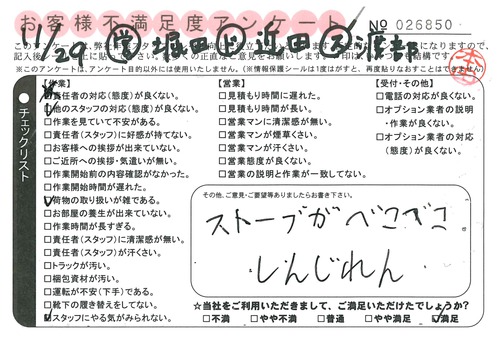 お客様不満足度アンケート
№ 026850
11/29 営 堀田 近田 ス 渡部
【作業】
□責任者の対応(態度)が良くない。
□他のスタッフの対応(態度)が良くない。
□作業を見ていて不安がある。
□責任者(スタッフ)に好感が持てない。
□お客様への挨拶が出来ていない。
□ご近所への挨拶・気遣いが無い。
□作業開始前の内容確認がなかった。
□作業開始時間が遅れた。
□荷物の取り扱いが雑である。
□お部屋の養生が出来ていない。
□作業時間が長すぎる。
□責任者(スタッフ)に清潔感が無い。
□責任者(スタッフ)が汗くさい。
□トラックが汚い。
□梱包資材が汚い。
□運転が不安(下手)である。
□靴下の履き替えをしてない。
□スタッフにやる気がみられない。
【営業】
□見積もり時間に遅れた。
□見積もり時間が長い。
□営業マンに清潔感が無い。
□営業マンが煙草くさい。
□営業マンが汗くさい。
□営業態度が良くない。
□営業の説明と作業が一致してない。
【受付・その他】
□電話の対応が良くない。
□オプション業者の説明・作業が良くない。
□オプション業者の対応(態度)が良くない。
チェックリスト
その他、ご意見・ご要望等ありましたらお書き下さい。
ストーブがべこべこ
しんじれん
☆当社をご利用いただきまして、ご満足いただけたでしょうか?
□不満 □やや不満 □普通 □やや満足 □満足